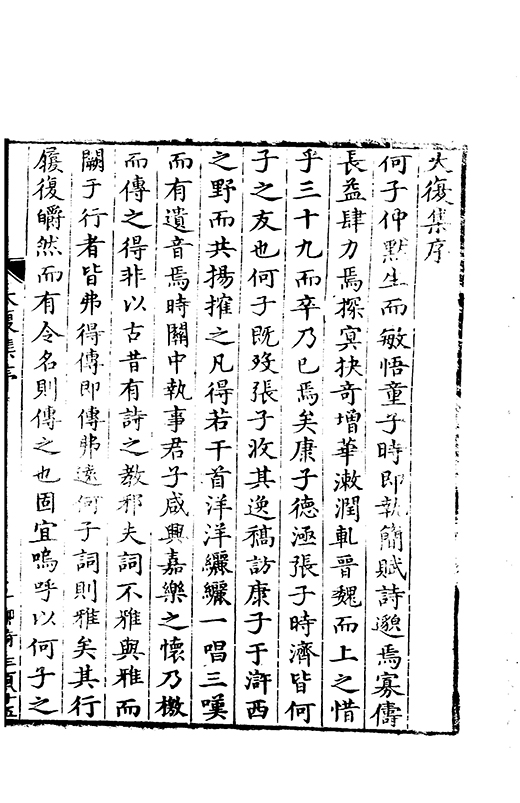 大復集序
何子仲默生而敏悟童子時即執簡賦詩邈焉寡儔
長益肆力焉探㝠抉奇增華漱潤軋晉魏而上之惜
乎三十九而卒乃已焉矣康子德涵張子時濟皆何
子之友也何子既歿張子收其逸稿訪康子于滸西
之野而共揚搉之凡得若干首洋洋纚纚一唱三嘆
而有遺音焉時關中執事君子咸興嘉樂之懷乃檄
而傳之得非以古昔有詩之教邪夫詞不雅與雅而
闕于行者皆弗得傳即傳弗遠何子詞則雅矣其行
履復皭然而有令名則傳之也固宜嗚呼以何子之
大復集序